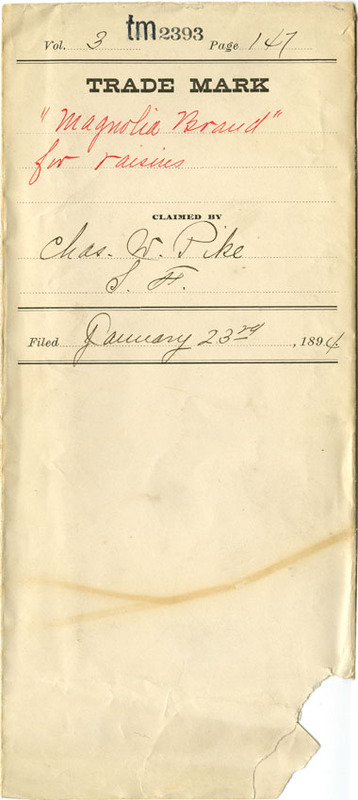 tm 2393
Vol. 3 Page 147
TRADE MARK
"Magnolia Brand"
for raisins
CLAIMED BY
Chas. W. Pike
S. F.
Filed January 23rd, 1894.